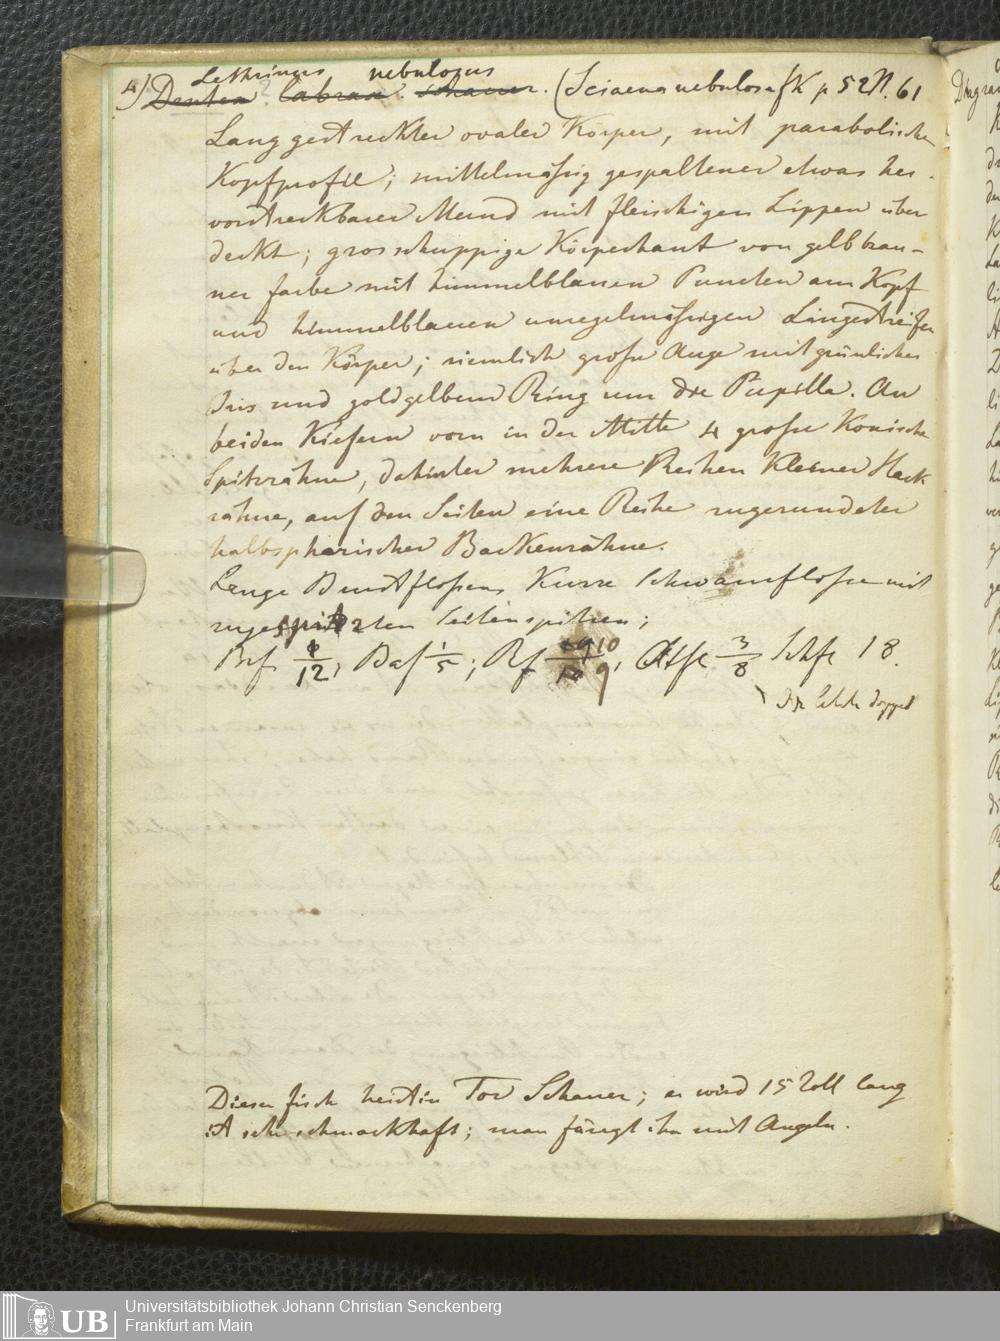 Lethrinus nebulosus
4) Dentex labrax. schauer. (Sciaena nebulosa fk p 52 N. 61
Lang gestreckter ovaler Körper, mit parabolische
Kopfprofil; mittelmäsig gespaltener etwas her-
vorstreckbarer Mund mit fleischigen Lippen über
deckt; grosschuppige Körperhaut von gelbbrau-
ner farbe mit himmelblauen Puncten am Kopf
und himmelblauen unregelmäsigen Längestreifen
über den Körper; ziemlich grose Auge mit grünlicher
Iris und goldgelbem Ring um die Pupille. An
beiden Kiefern vorn in der Mitte 4 grose Konische
Spitzzähne, dahinter mehrere Reihen Kleiner Heck
zähne, auf den Seiten eine Reihe zugerundeter
halbspharischer Backenzähne.
Lange Brustflosen, Kurze Schwanzflose mit
zugespitzten Seitenspitzen;
Brf /12, Baf 1/5; Rf 10/9, Stfl 3/8 Schfl 18.
letzte doppel
Dieser fisch heist in Tor Schauer; er wird 15 Zoll lang
ist sehr schmackhaft; man fängt ihn mit Angeln.
Universitätsbibliothek Johann Christian Senckenberg
UB Frankfurt am Main